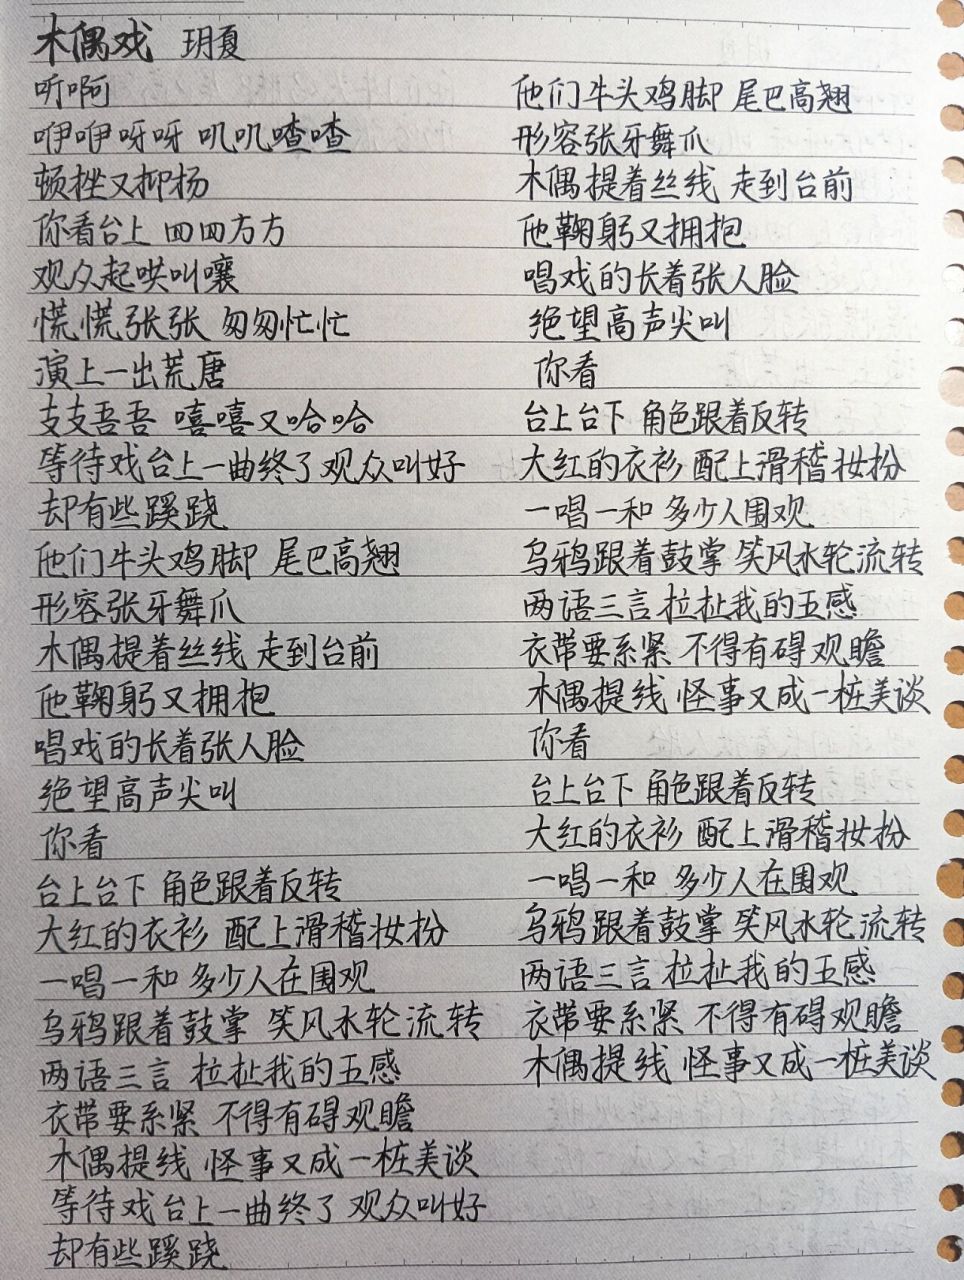 木偶戏 玥夏
听啊
咿咿呀呀 叽叽喳喳
顿挫又抑扬
你看台上 四四方方
观众起哄叫嚷
慌慌张张 匆匆忙忙
演上一出荒唐
支支吾吾 嘻嘻又哈哈
等待戏台上一曲终了 观众叫好
却有些蹊跷
他们牛头鸡脚 尾巴高翘
形容张牙舞爪
木偶提着丝线 走到台前
他鞠躬又拥抱
唱戏的长着张人脸
绝望高声尖叫
你看
台上台下 角色跟着反转
大红的衣衫 配上滑稽妆扮
一唱一和 多少人在围观
乌鸦跟着鼓掌 笑风水轮流转
两语三言 拉扯我的五感
衣带要系紧 不得有碍观瞻
木偶提线 怪事又成一桩美谈
等待戏台上一曲终了 观众叫好
却有些蹊跷
他们牛头鸡脚 尾巴高翘
形容张牙舞爪
木偶提着丝线 走到台前
他鞠躬又拥抱
唱戏的长着张人脸
绝望高声尖叫
你看
台上台下 角色跟着反转
大红的衣衫 配上滑稽妆扮
一唱一和 多少人围观
乌鸦跟着鼓掌 笑风水轮流转
两语三言 拉扯我的五感
衣带要系紧 不得有碍观瞻
木偶提线 怪事又成一桩美谈
你看
台上台下 角色跟着反转
大红的衣衫 配上滑稽妆扮
一唱一和 多少人在围观
乌鸦跟着鼓掌 笑风水轮流转
两语三言 拉扯我的五感
衣带要系紧 不得有碍观瞻
木偶提线 怪事又成一桩美谈